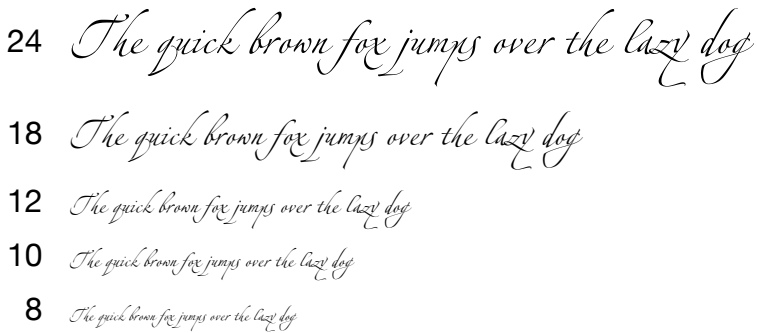 24 The quick brown fox jumps over the lazy dog
18 The quick brown fox jumps over the lazy dog
12 The quick brown fox jumps over the lazy dog
10 The quick brown fox jumps over the lazy dog
8 The quick brown fox jumps over the lazy dog